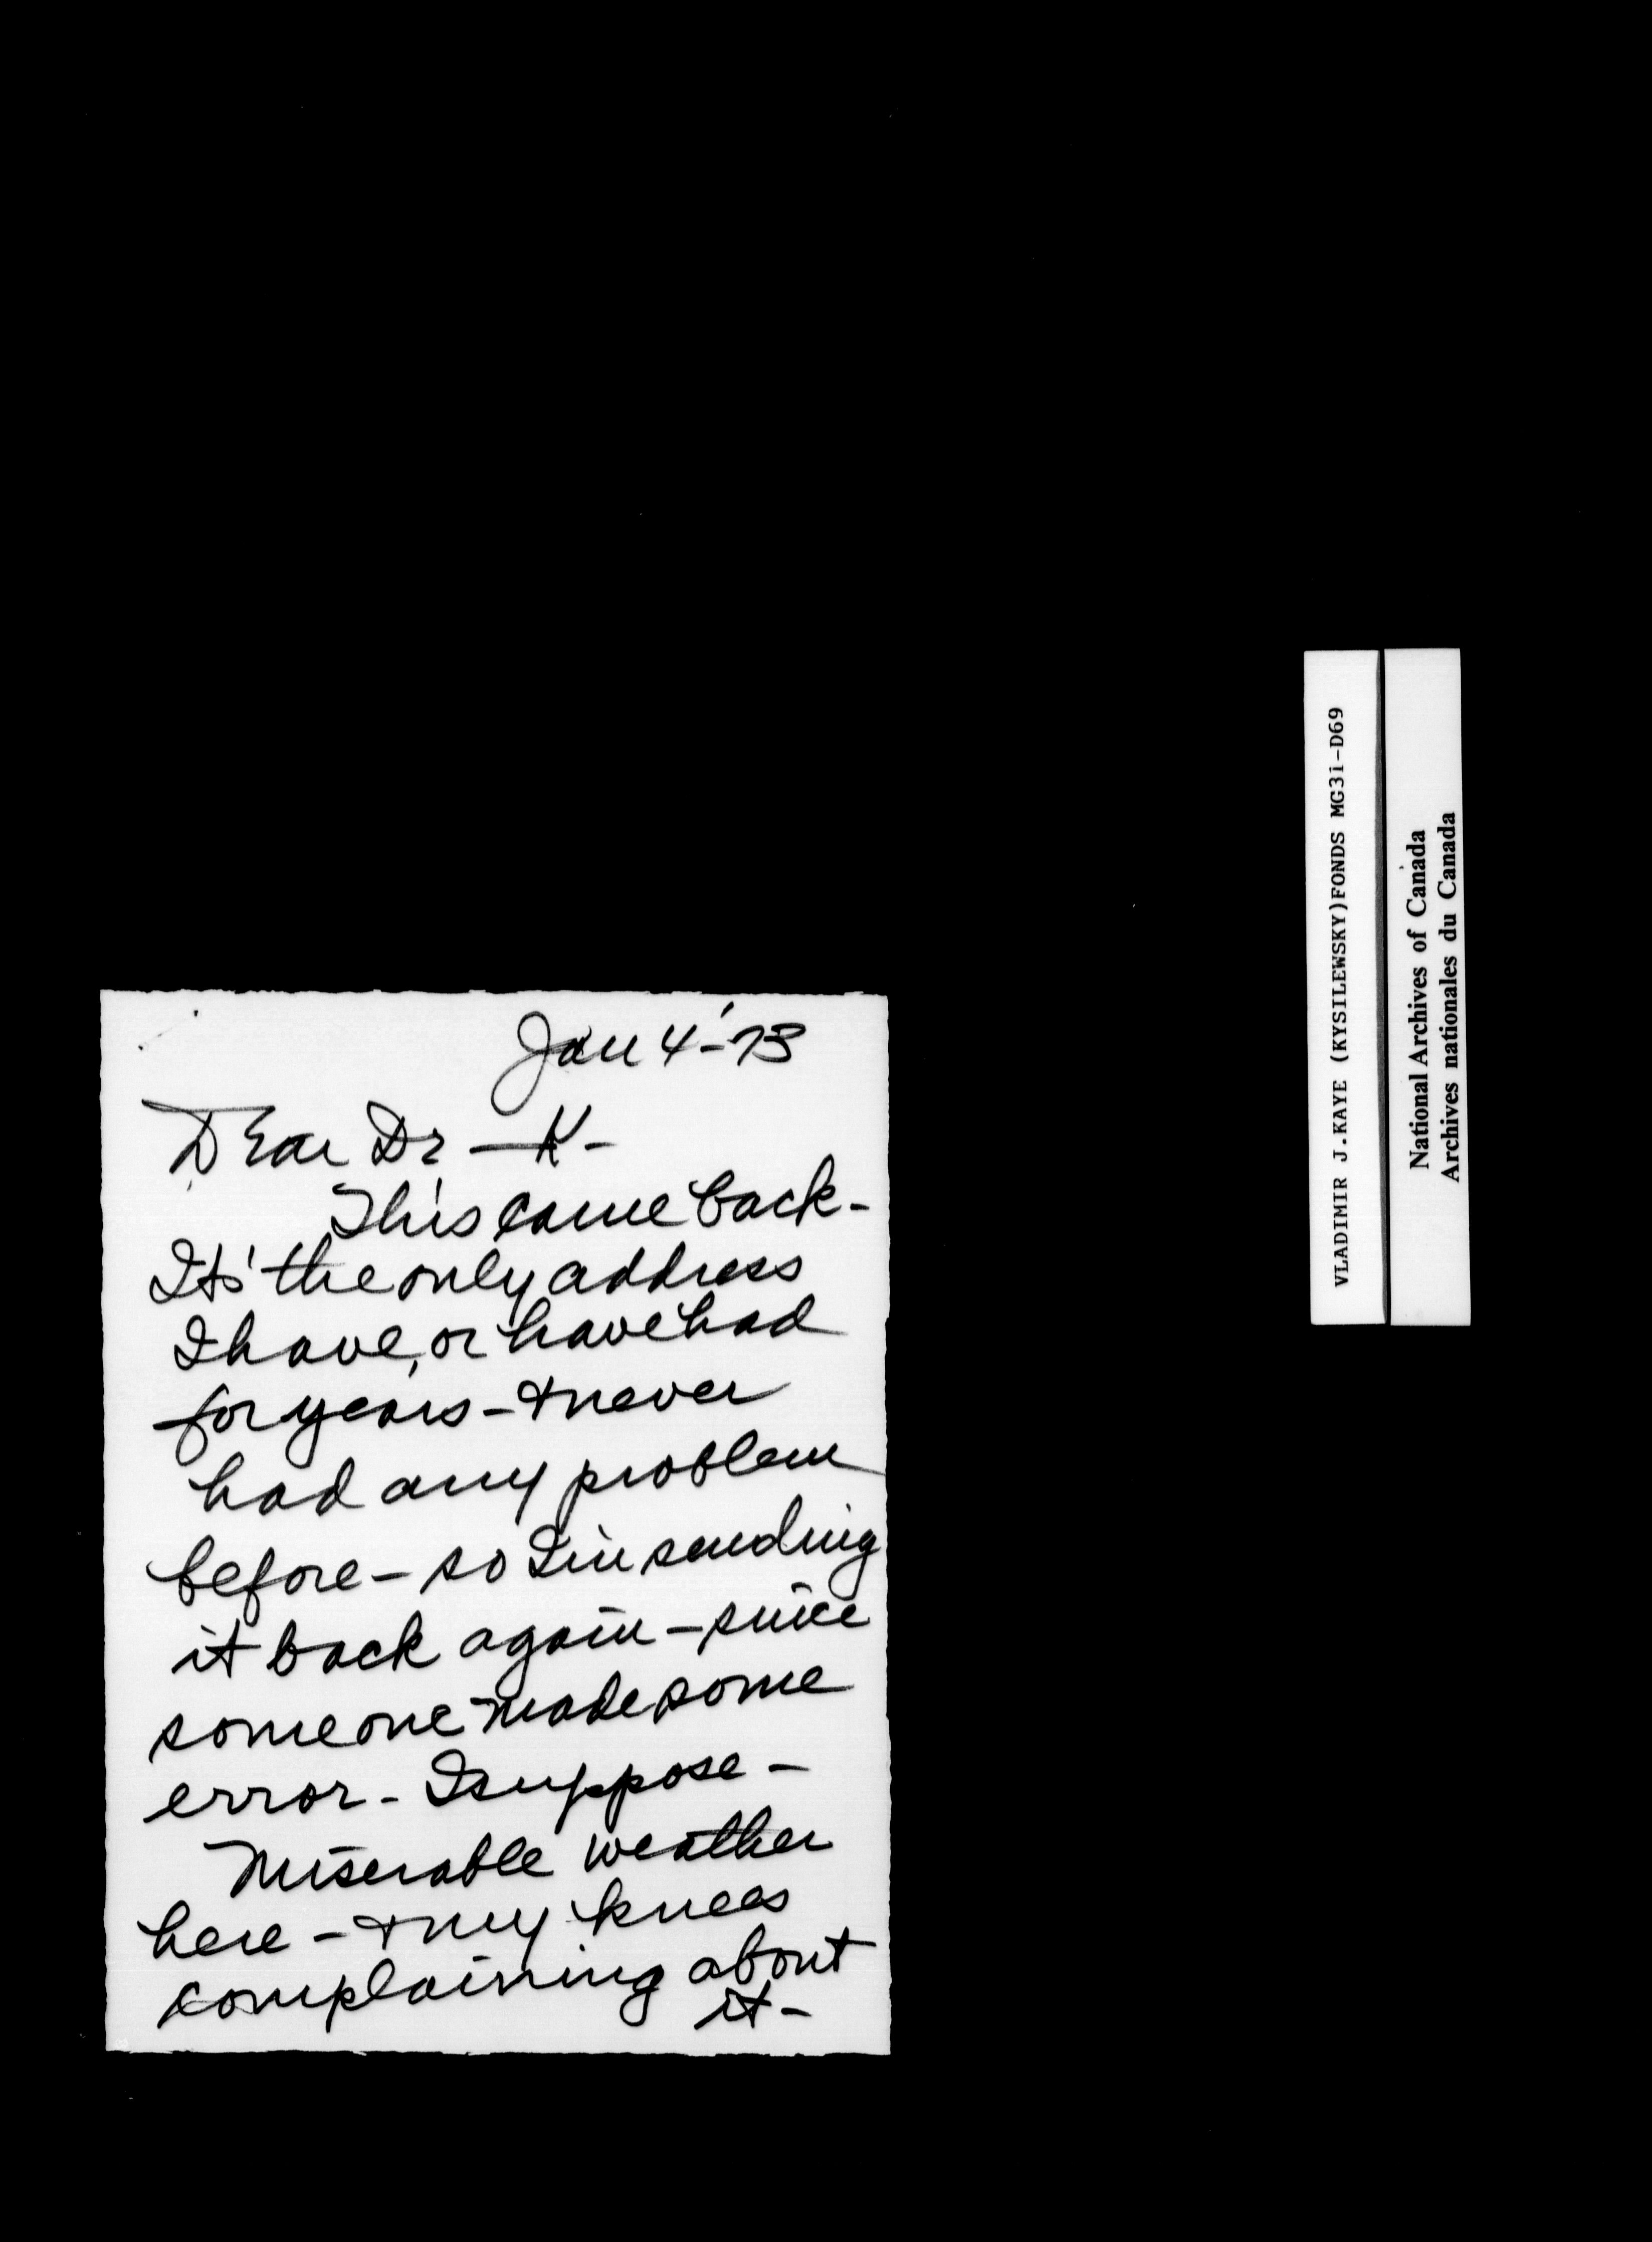 Jan 4'-73
Dear Dr - K -
This came back -
Its' the only address
I have, or have had
for years - & never
had any problem
before - so I'm sending
it back again - since
someone made some
error - I suppose -
Miserable weather
here - & my knees
complaining about
it -
VLADIMIR J.KAYE (KYSILEWSKY)FONDS MG31-D69
National Archives of Canada
Archives nationales du Canada